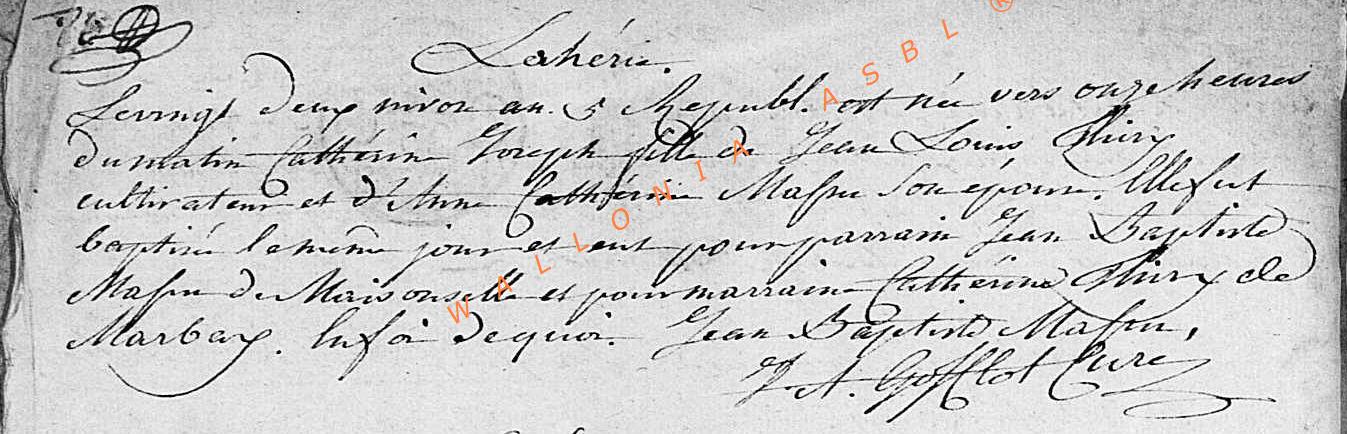 Lahérie.
Le vingt deux nivose an. 5 Republ. est née vers onze heures
du matin Cathérine Joseph fille de Jean Louis Thiry
cultivateur et d'Anne Cathérine Massu son épouse. Elle fut
baptisée le même jour et eut pour parrain Jean Baptiste
Massu de Maisoncelle et pour marraine Cathérine Thiry de
Marbay. En foi de quoi. Jean Baptiste Massu,
J. A. Curé
WALLONIA ASBL ®